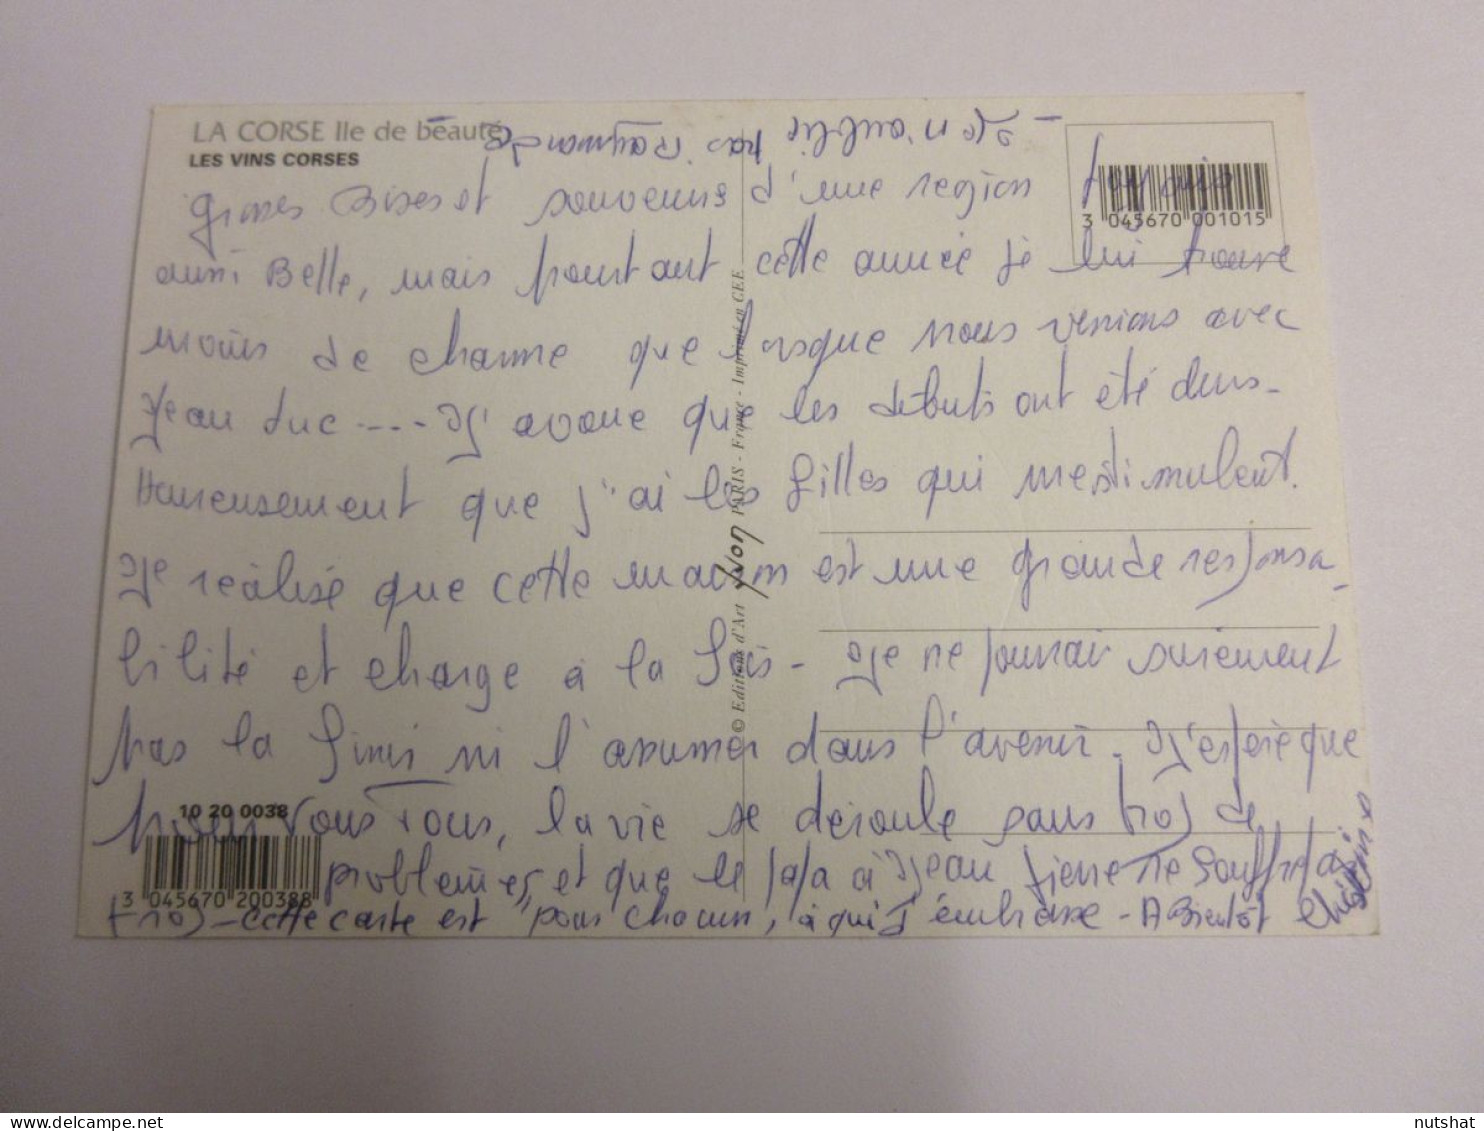 LA CORSE Ile de beauté
LES VINS CORSES
- Je n'oublie pas Raymonde
grosses Bises et souvenirs d'une region toujours
3 045670 001015
aussi Belle, mais pourtant cette année je lui trouve
moins de charme que lorsque nous venions avec
Jean Luc .... J'avoue que les debuts ont été durs -
Heureusement que j'ai les filles qui me stimulent.
Je réalise que cette maison est une grande responsa-
bilité et charge à la fois - Je ne pourrai surement
pas la finir ni l'assumer dans l'avenir - J'espère que
pour vous tous, la vie se déroule sans trop de
problemes, et que le papa à Jean Pierre ne souffre pas
trop - cette carte est pour chacun, à qui j'embrasse - A Bientôt
10 20 0038
3 045670 200388
© Editions d'Art Yvon PARIS - France - Imprimé en CEE
nutshat